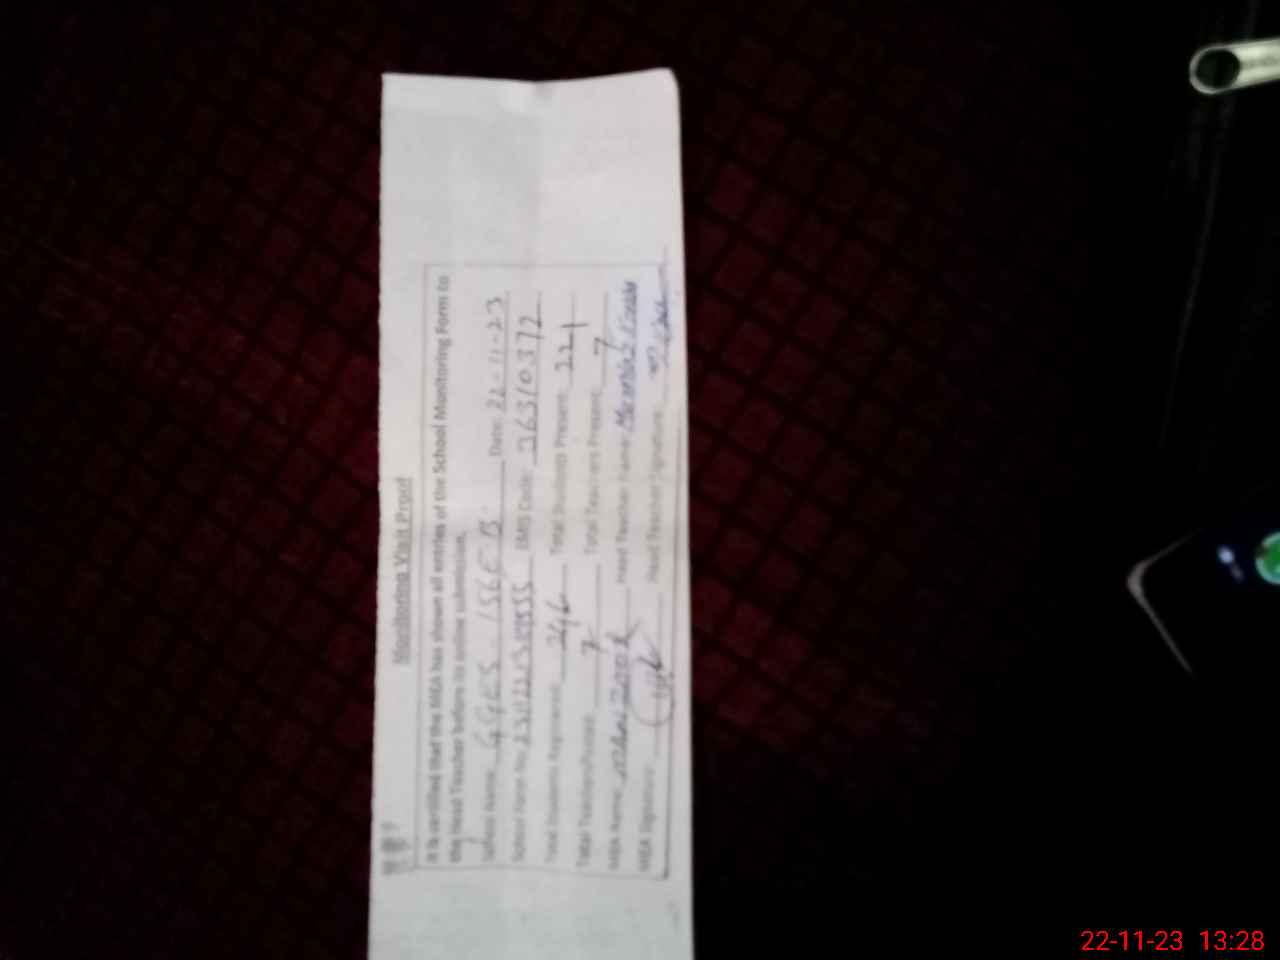 Monitoring Visit Proof
It is certified that the MEA has shown all entries of the School Monitoring Form to
the Head Teacher before its online submission.
School Name: GGES 156EB Date: 22-11-23
School Form No: EMIS Code: 36310372
Total Students Registered: 246 Total Students Present: 221
Total Teachers Posted: 7 Total Teachers Present: 7
MEA Name: Head Teacher Name:
MEA Signature: Head Teacher Signature:
22-11-23 13:28